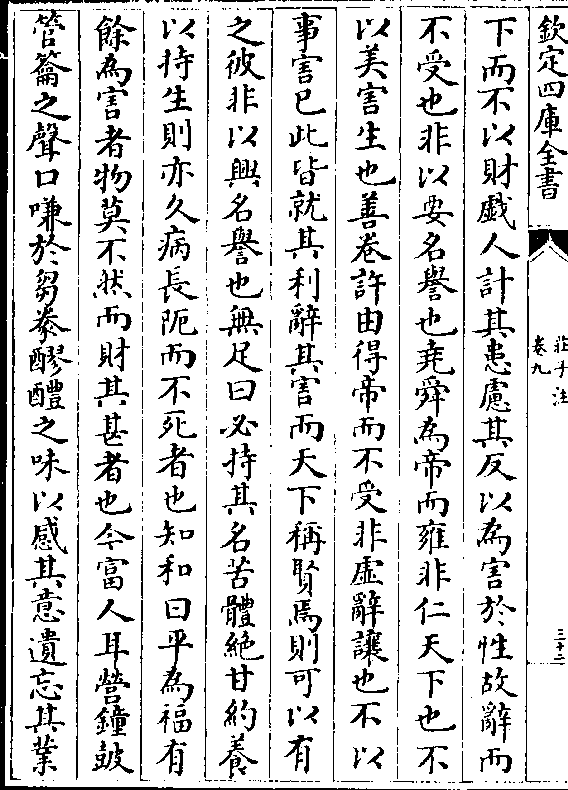 欽定四庫全書
莊子注
卷九
三十二
下而不以財戲人計其患慮其反以為害於性故辭而
不受也非以要名譽也堯舜為帝而雍非仁天下也不
以美害生也善卷許由得帝而不受非虛辭讓也不以
事害已此皆就其利辭其害而天下稱賢焉則可以有
之彼非以興名譽也無足曰必持其名苦體絶甘約養
以持生則亦久病長阨而不死者也知和曰平為福有
餘為害者物莫不然而財其甚者也今富人耳營鐘鼓
管籥之聲口嗛於芻豢醪醴之味以感其意遺忘其業